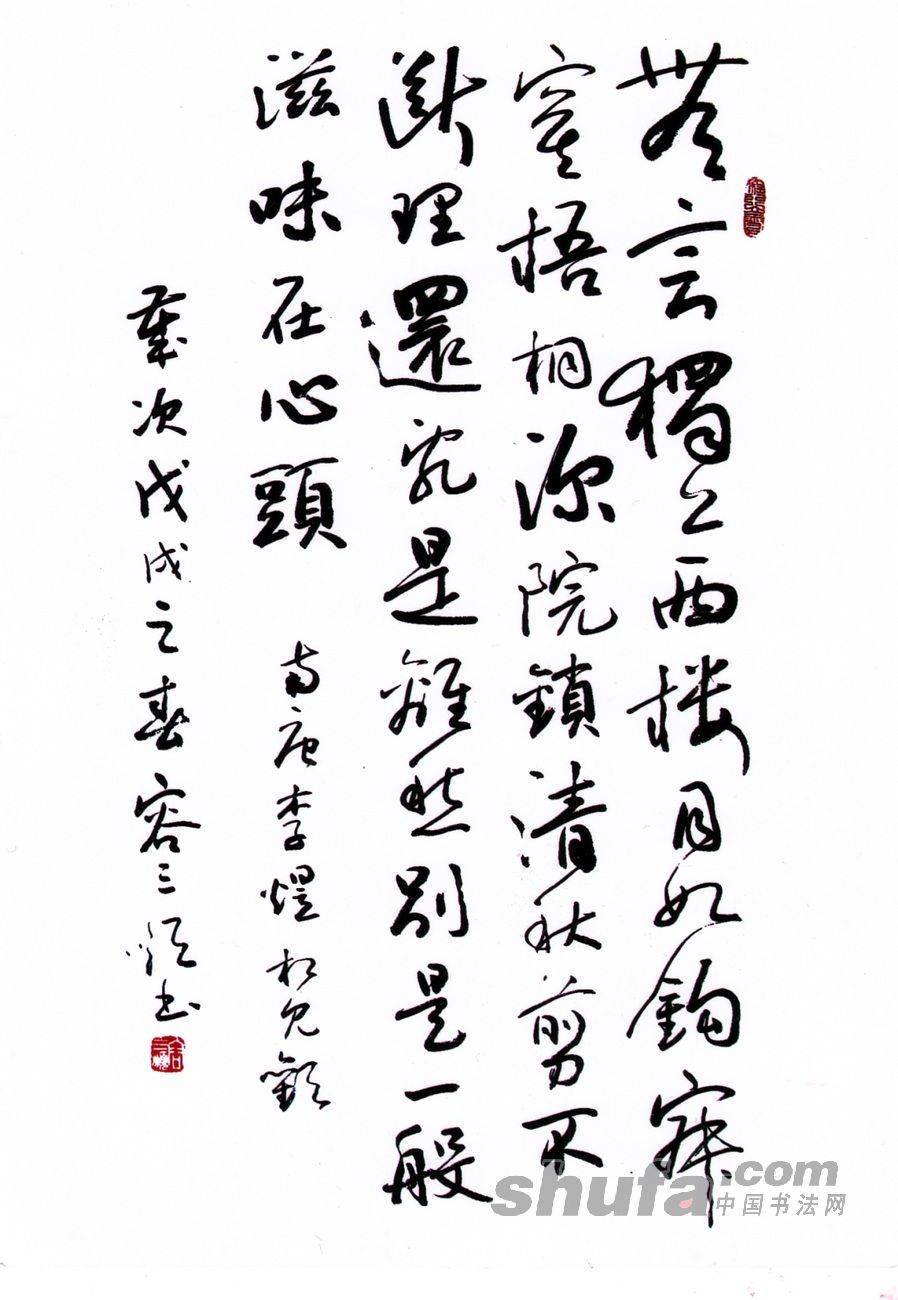 無言獨上西樓月如鈎寂
寞梧桐深院鎖清秋剪不
斷理還亂是離愁別是一般
滋味在心頭 南唐李煜相見歡
歲次戊戌之春容三順书
shufa.com
中国书法网